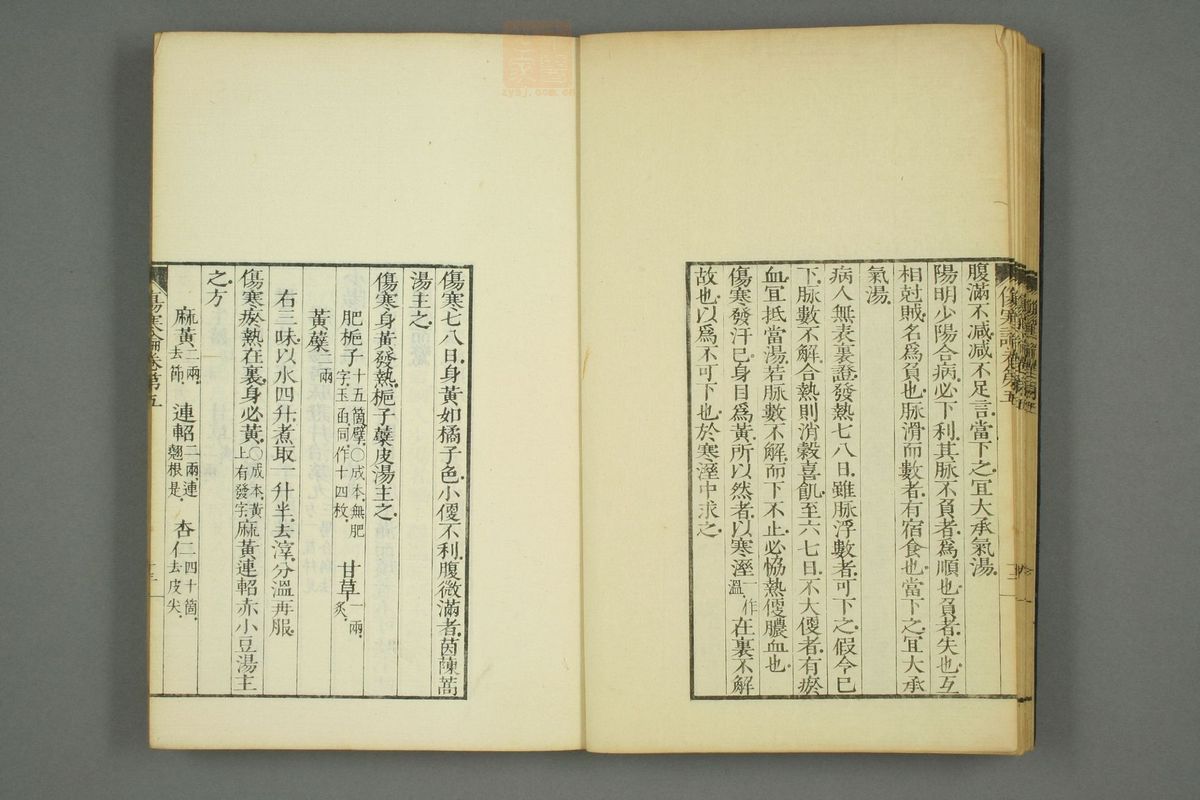 腹滿不减減不足言當下之宜大承氣湯
陽明少陽合病必下利其脉不負者爲順也負者失也互
相尅賊名爲負也脉滑而數者有宿食也當下之宜大承
氣湯
病人無表裏證發熱七八日雖脉浮數者可下之假令已
下脉數不解合熱則消穀喜飢至六七日不大便者有瘀
血宜抵當湯若脉數不解而下不止必恊熱便膿血也
傷寒發汗已身目爲黃所以然者以寒溼一作溫在裏不解
故也以爲不可下也於寒溼中求之
傷寒七八日身黃如橘子色小便不利腹微滿者茵蔯蒿
湯主之
傷寒身黃發熱梔子蘗皮湯主之
肥梔子十五箇擘○成本無肥字玉函同作十四枚 甘草一兩炙
黃蘗二兩
右三味以水四升煮取一升半去滓分溫再服
傷寒瘀熱在裏身必黃○成本黃上有發字麻黃連軺赤小豆湯主
之方
麻黃二兩去節 連軺二兩連翹根是 杏仁四十箇去皮尖
傷寒論卷第五
zysj.com.cn